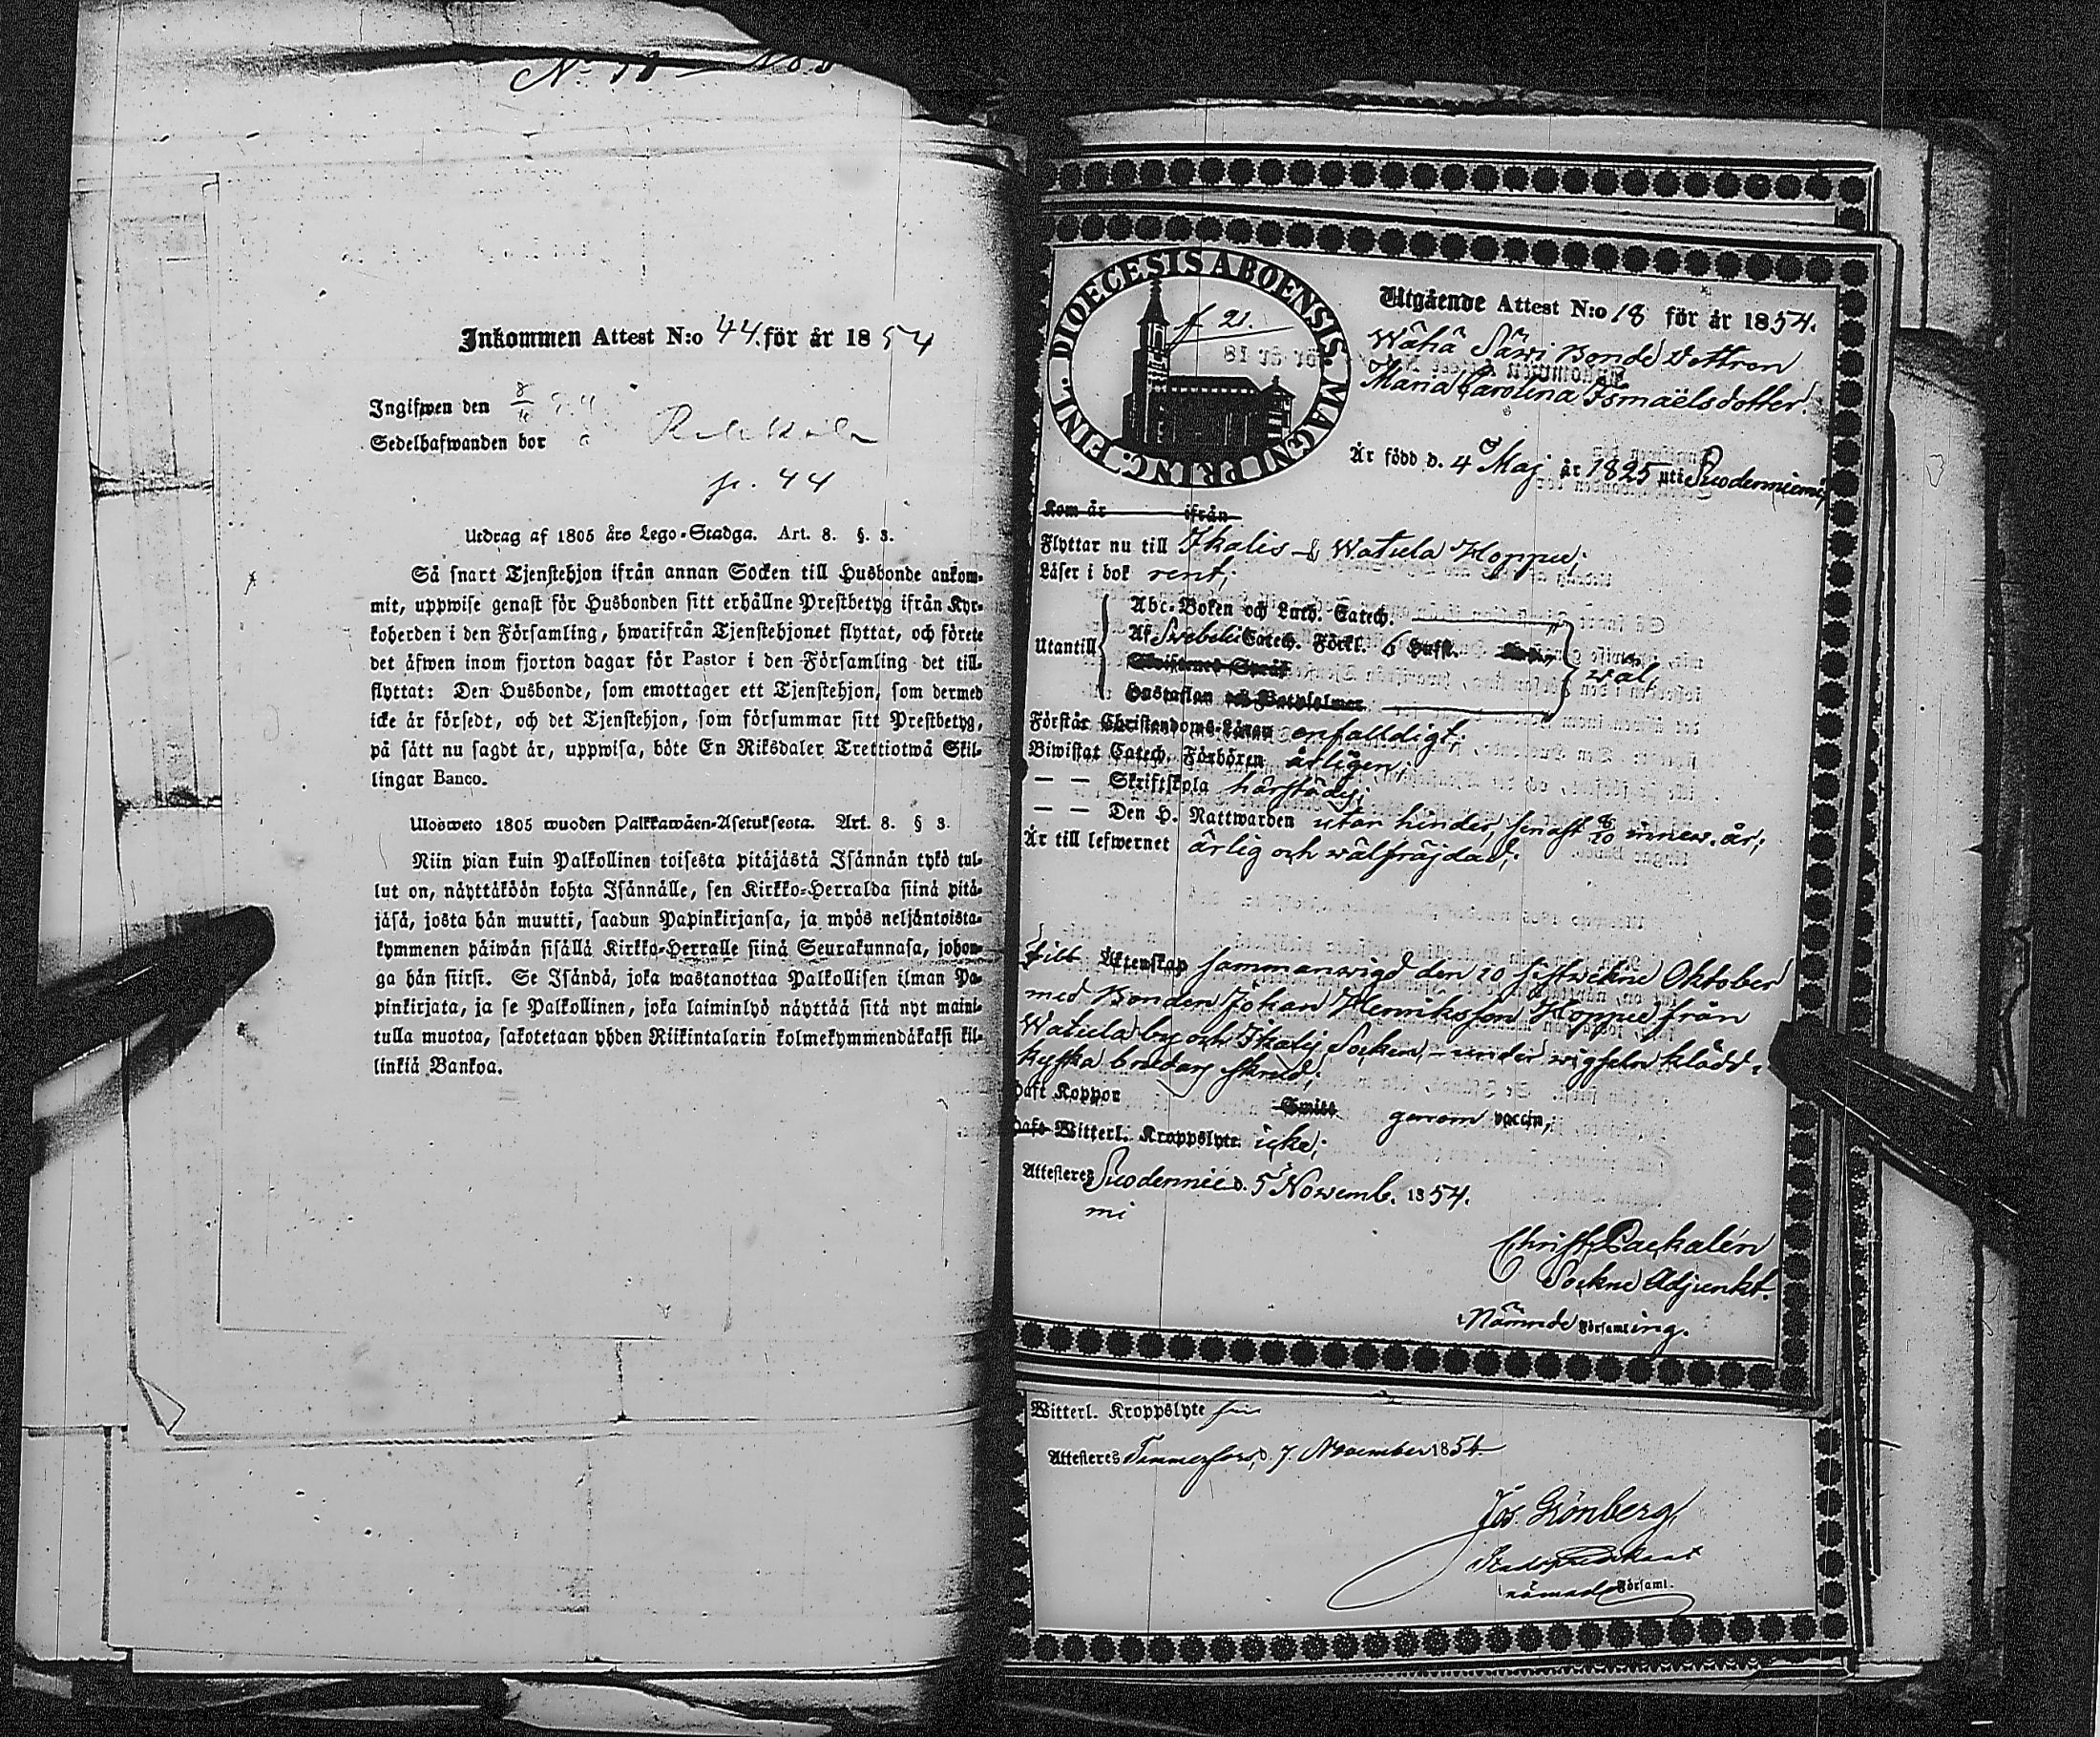 Inkommen Attest N:o 44. för år 1854
Ingifwen den 8
Sedelhafwanden bor
p. 44
Utdrag af 1805 års Lego-Stadga. Art. 8. §. 3.
Så snart Tjenstehjon ifrån annan Socken till Husbonde ankom-
mit, uppwise genast för Husbonden sitt erhållne Prestbetyg ifrån Kyr-
koherden i den Församling, hwarifrån Tjenstehjonet flyttat, och förete
det äfwen inom fjorton dagar för Pastor i den Församling det till-
flyttat: Den Husbonde, som emottager ett Tjenstehjon, som dermed
icke är försedt, och det Tjenstehjon, som försummar sitt Prestbetyg,
på sätt nu sagdt är, uppwisa, böte En Riksdaler Trettiotwå Skil-
lingar Banco.
Ulosweto 1805 wuoden Palkkawäen-Asetuksesta. Art. 8. § 3.
Niin pian kuin Palkollinen toisesta pitäjästä Isännän tykö tul-
lut on, näyttäköön kohta Isännälle, sen Kirkko-Herralda siinä pitä-
jäsä, josta hän muutti, saadun Papinkirjansa, ja myös neljäntoista-
kymmenen päiwän sisällä Kirkko-Herralle siinä Seurakunnasa, johon-
ga hän siirsi. Se Isändä, joka wastanottaa Palkollisen ilman Pa-
pinkirjata, ja se Palkollinen, joka laiminlyö näyttää sitä nyt maini-
tulla muotoa, sakotetaan yhden Riikintalarin kolmekymmendäkaksi kil-
linkiä Bankoa.
DIOECESIS ABOENSIS. MAGNI PRINC. FINL.
f 21.
Utgående Attest N:o 18 för år 1854.
Wähä Säwi Bonde Dottren
Maria Carolina Ismaelsdotter.
Är född d. 4 Maj år 1825 uti Suodenniemi,
Kom år ifrån
Flyttar nu till Ikalis & Watula Hoppu;
Läser i bok rent;
Utantill
Abc-Boken och Luth. Catech.
Af Swebelii Catech. Förkl. 6 Hufst.
Skriftenes Språk
Hustaflan och Botpsalmer
wäl,
Förstår Christendoms-Läran enfalldigt;
Biwistat Catech. Förhören årligen;
— — Skriftskola härstädes;
— — Den H. Nattwarden utan hinder, senast 8/10 innew. år;
Är till lefwernet ärlig och wälfräjdad;
Till Äktenskap sammanwigd den 10 sistwekne Oktober
med Bonden Johan Henriksson Hoppu från
Watula by och Ikalis Socken, under wigseln klädd i
kyska brudars skrud;
Haft Koppor Smitt genom vaccin,
Hafe Witterl. Kroppslyte icke;
Attesteres Suodennie d. 5 Novemb. 1854.
mi
Christ. Packalén
Sockne Adjunkt.
i Nämnde Församling.
Witterl. Kroppslyte
Attesteres Tammerfors, d. 7. November 1854
Jos. Grönberg
Stadspredikant
i nämnde Församl.